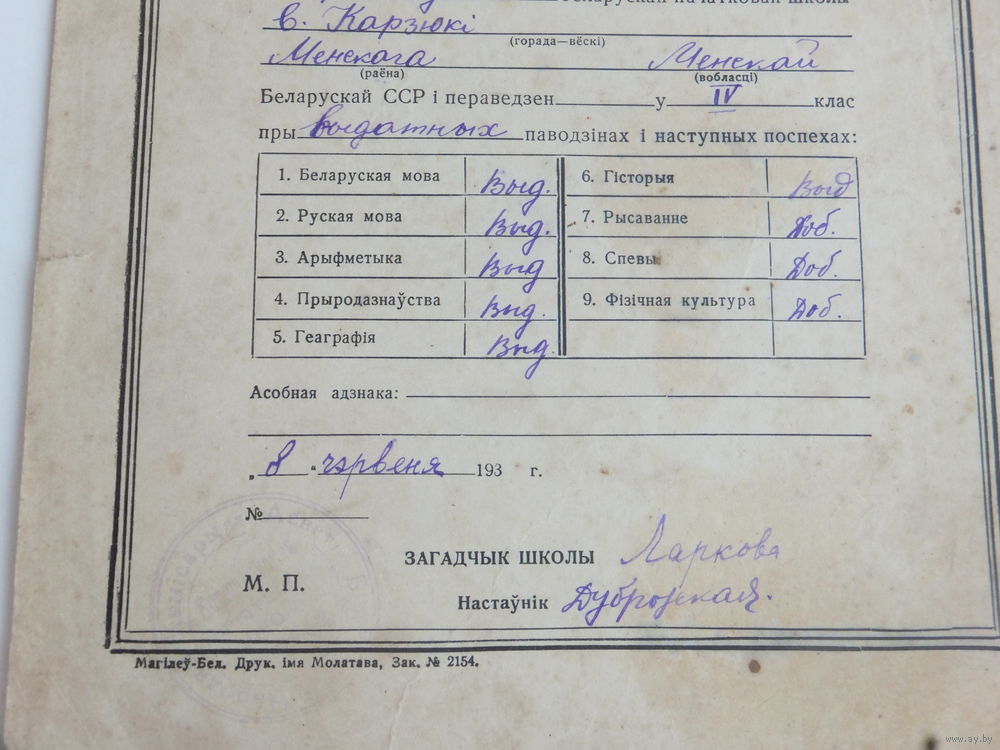 Беларускай пачатковай школы
в. Карзюкі
(горада—вёскі)
Менскага Менскай
(раёна) (вобласці)
Беларускай ССР і пераведзен у IV клас
пры выдатных паводзінах і наступных поспехах:
1. Беларуская мова Выд. 6. Гісторыя Выд
2. Руская мова Выд. 7. Рысаванне Доб.
3. Арыфметыка Выд 8. Спевы Доб.
4. Прыродазнаўства Выд. 9. Фізічная культура Доб.
5. Геаграфія Выд.
Асобная адзнака:
„8“ чэрвеня 193 г.
№
ЗАГАДЧЫК ШКОЛЫ Ларкова
М. П.
Настаўнік
Магілеў-Бел. Друк. імя Молатава, Зак. № 2154.
www.ay.by